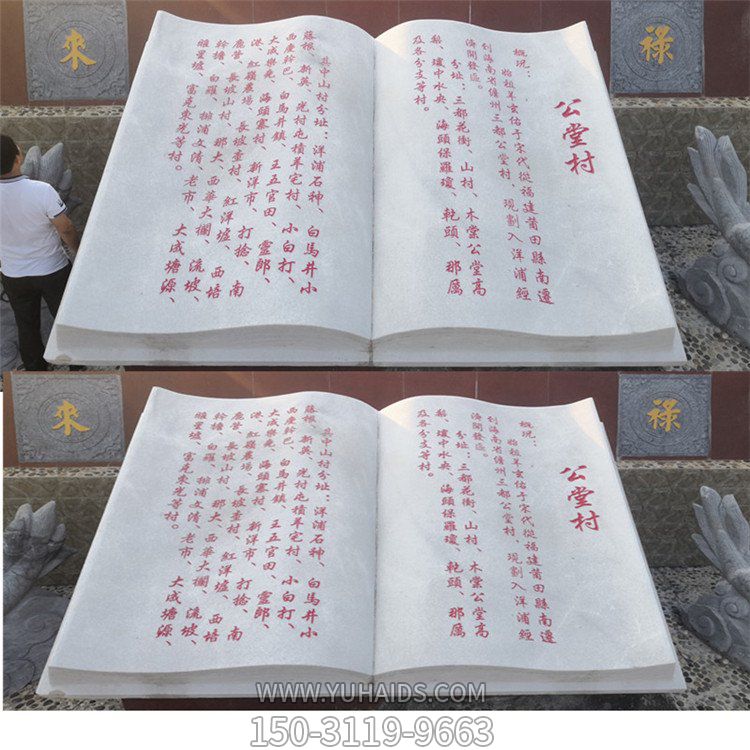 祿
來
公堂村
概況：
始祖羊玄佑于宋代從福建莆田縣南遷
到海南省儋州三都公堂村，現劃入洋浦經
濟開發區。
分址：三都花衙、山村、木棠公堂高
梨、瓊中水央、海頭保羅瓊、乾頭、那厲
及各分支等村。
其中山村分址：洋浦石神、白馬井小
藤根、新英、光村屯積羊宅村、小白打、
西慶幹巴、白馬井鎮、王五官田、靈郎、
大成樂免、海頭寨村、新洋市、打捻、南
港、紅嶺農場、長坡查村、紅洋墟、西培
鹿營、長坡山村、那大、西華大欄、流坡、
幹塘、白羅、排浦文清、老市、大成塘源、
雅星墟、富克東光等村。
祿
來
公堂村
概況：
始祖羊玄佑于宋代從福建莆田縣南遷
到海南省儋州三都公堂村，現劃入洋浦經
濟開發區。
分址：三都花衙、山村、木棠公堂高
梨、瓊中水央、海頭保羅瓊、乾頭、那厲
及各分支等村。
其中山村分址：洋浦石神、白馬井小
藤根、新英、光村屯積羊宅村、小白打、
西慶幹巴、白馬井鎮、王五官田、靈郎、
大成樂免、海頭寨村、新洋市、打捻、南
港、紅嶺農場、長坡查村、紅洋墟、西培
鹿營、長坡山村、那大、西華大欄、流坡、
幹塘、白羅、排浦文清、老市、大成塘源、
雅星墟、富克東光等村。
WWW.YUHAIDS.COM
150-3119-9663